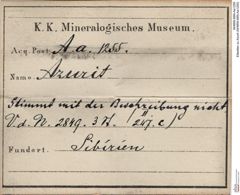 K. K. Mineralogisches Museum.
Acq. Post: A. a. 1255.
Name: Azurit
Stimmt mit der Beschreibung nicht,
V. d. N. 2849. 3 K. (247. c)
Fundort: Sibirien